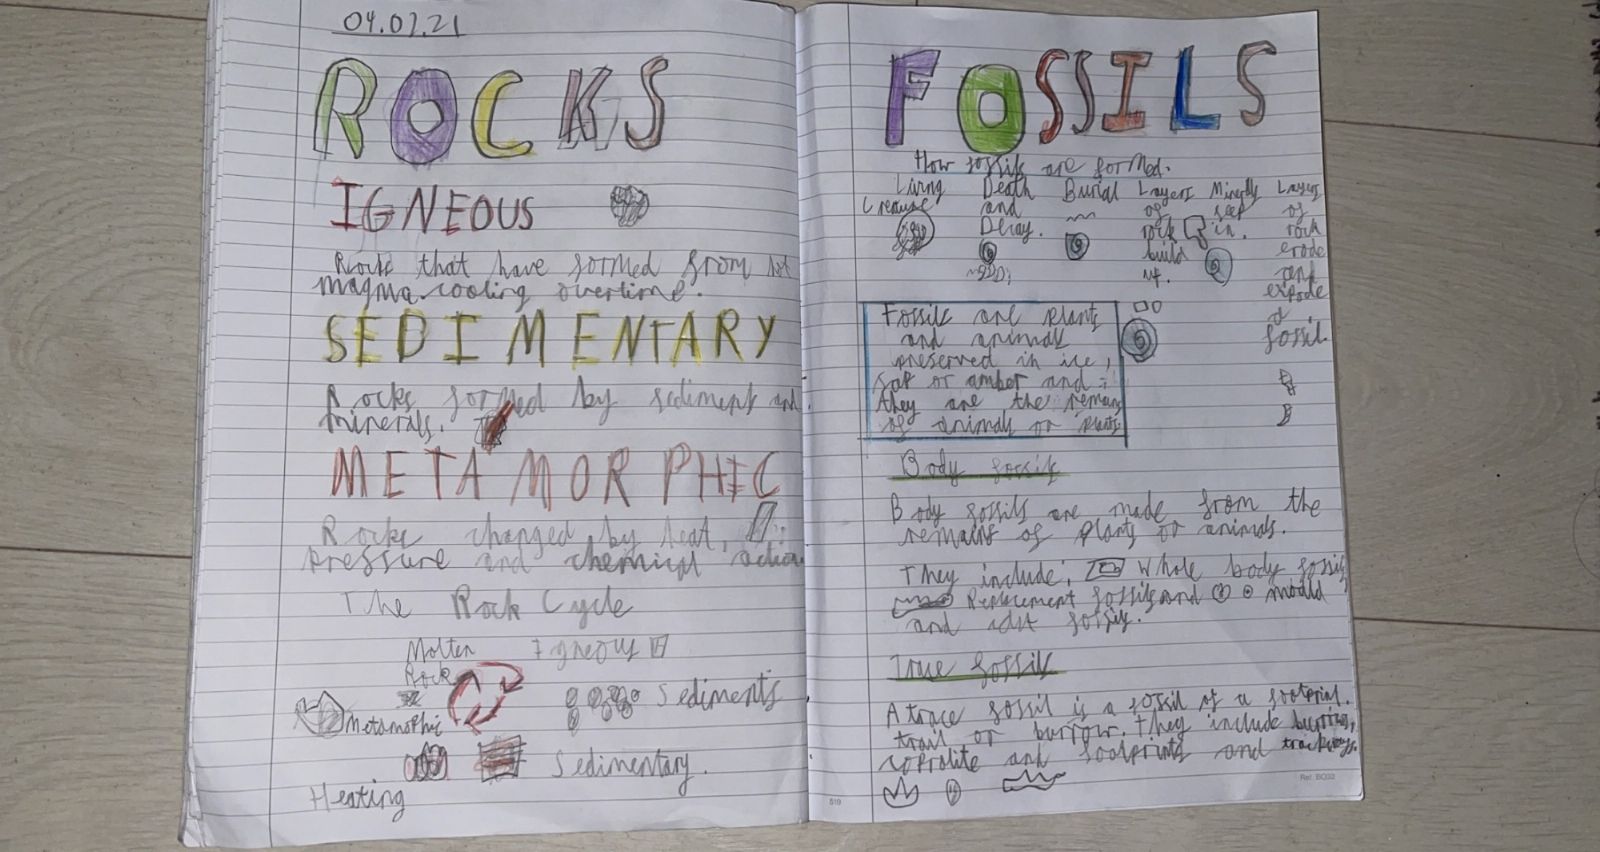 04.02.21
ROCKS
IGNEOUS
Rocks that have formed from hot
magma cooling overtime.
SEDIMENTARY
Rocks formed by sediment and
minerals.
METAMORPHIC
Rocks changed by heat,
pressure and chemical action
The Rock Cycle
Molten Igneous
Rock
Sediments
Metamorphic
Sedimentary.
Heating
FOSSILS
How fossils are formed.
Living Creature
Death and Decay.
Burial
Layers of rock build up.
seep in.
Layers of rock erode and expode a fossil.
Fossils are plants
and animals
preserved in ice,
sap or amber and
they are the remains
of animals or plants
Body fossils
Body fossils are made from the
remains of plants or animals.
They include: Whole body fossils
Replacement fossils and mould
and cast fossils.
fossils
A trace fossil is a fossil of a footprint.
trail or burrow. They include burrows,
coprolite and footprints and trackways.
Ref: BO33